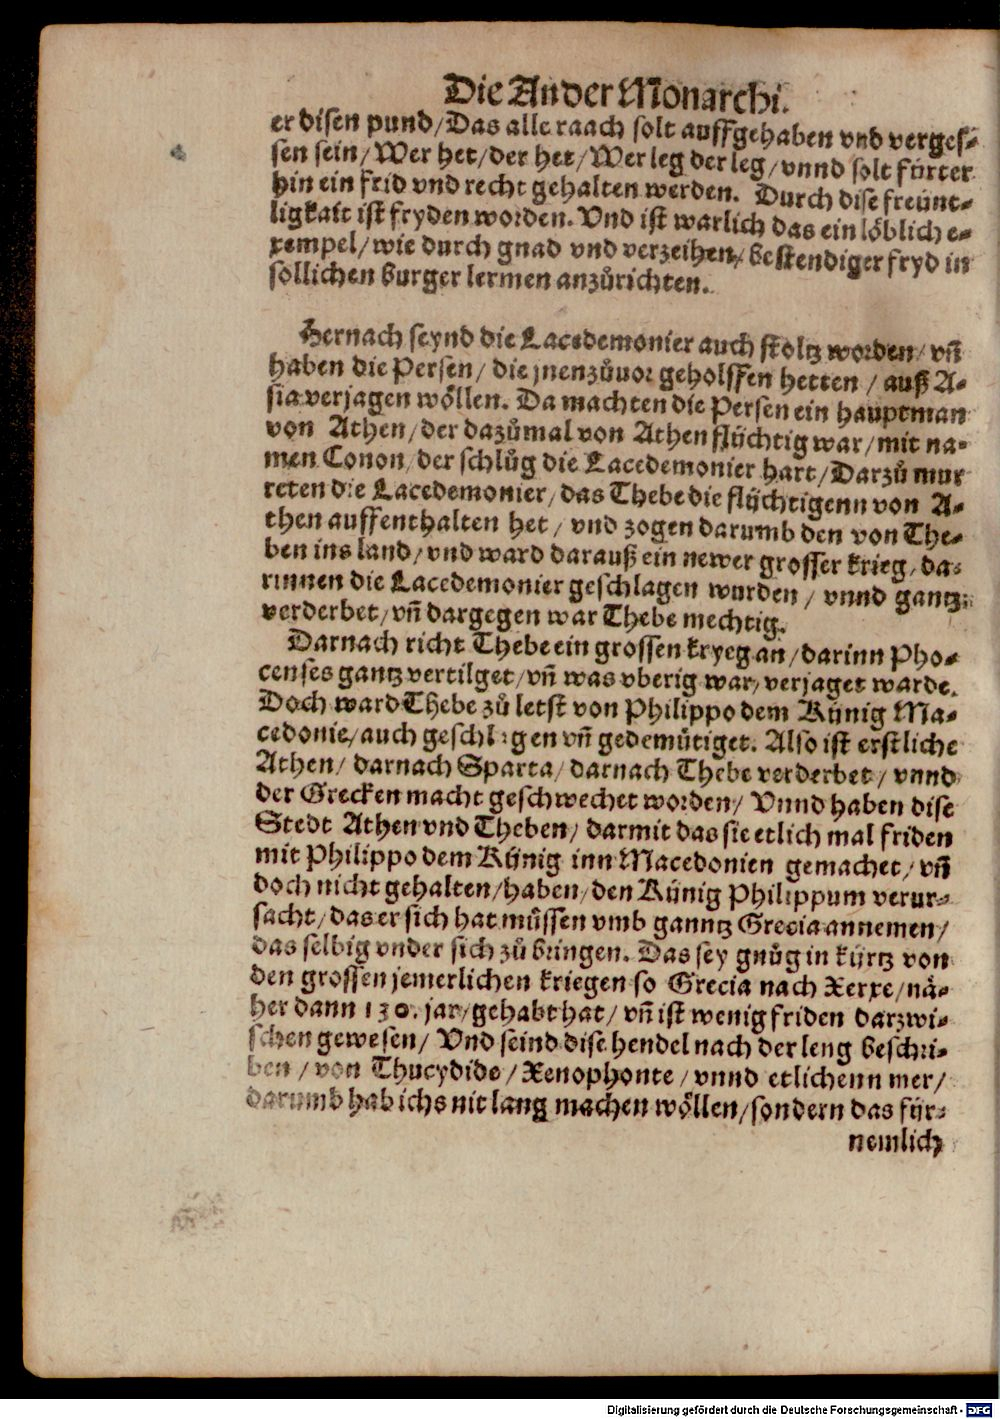 Die Ander Monarchi.
er disen pund/Das alle raach solt auffgehaben vnd vergeſ⸗
sen sein/Wer het/der het/Wer leg der leg/vnnd solt fürter
hin ein frid vnd recht gehalten werden. Durch dise freünt⸗
ligkait ist fryden worden. Vnd ist warlich das ein löblich e⸗
xempel/wie durch gnad vnd verzeihen/bestendiger fryd in
sollichen burger lermen anzůrichten.
Hernach seynd die Lacedemonier auch stoltz worden/vñ
haben die Persen/die jnen zůuor geholffen hetten/auß A⸗
sia verjagen wöllen. Da machten die Persen ein hauptman
von Athen/der dazůmal von Athen flüchtig war/mit na⸗
men Conon/der schlůg die Lacedemonier hart/Darzů mur
reten die Lacedemonier/das Thebe die flüchtigenn von A⸗
then auffenthalten het/vnd zogen darumb den von The⸗
ben ins land/vnd ward darauß ein newer grosser krieg/da⸗
rinnen die Lacedemonier geschlagen wurden/vnnd gantz
verderbet/vñ dargegen war Thebe mechtig.
Darnach richt Thebe ein grossen kryeg an/darinn Pho⸗
censes gantz vertilget/vñ was vberig war/verjaget warde.
Doch ward Thebe zů letst von Philippo dem Künig Ma⸗
cedonie/auch geschlagen vñ gedemütiget. Also ist erstliche
Athen/darnach Sparta/darnach Thebe verderbet/vnnd
der Grecken macht geschwechet worden/Vnnd haben dise
Stedt Athen vnd Theben/darmit das sie etlich mal friden
mit Philippo dem Künig inn Macedonien gemachet/vñ
doch nicht gehalten/haben/den Künig Philippum verur⸗
sacht/das er sich hat müssen vmb ganntz Grecia annemen/
das selbig vnder sich zů bringen. Das sey gnůg in kürtz von
den grossen jemerlichen kriegen so Grecia nach Xerxe/nä⸗
her dann 130. jar/gehabt hat/vñ ist wenig friden darzwi⸗
schen gewesen/Vnd seind dise hendel nach der leng beschri⸗
ben/von Thucydide/Xenophonte/vnnd etlichenn mer/
darumb hab ichs nit lang machen wöllen/sondern das für⸗
nemlich
Digitalisierung gefördert durch die Deutsche Forschungsgemeinschaft - DFG